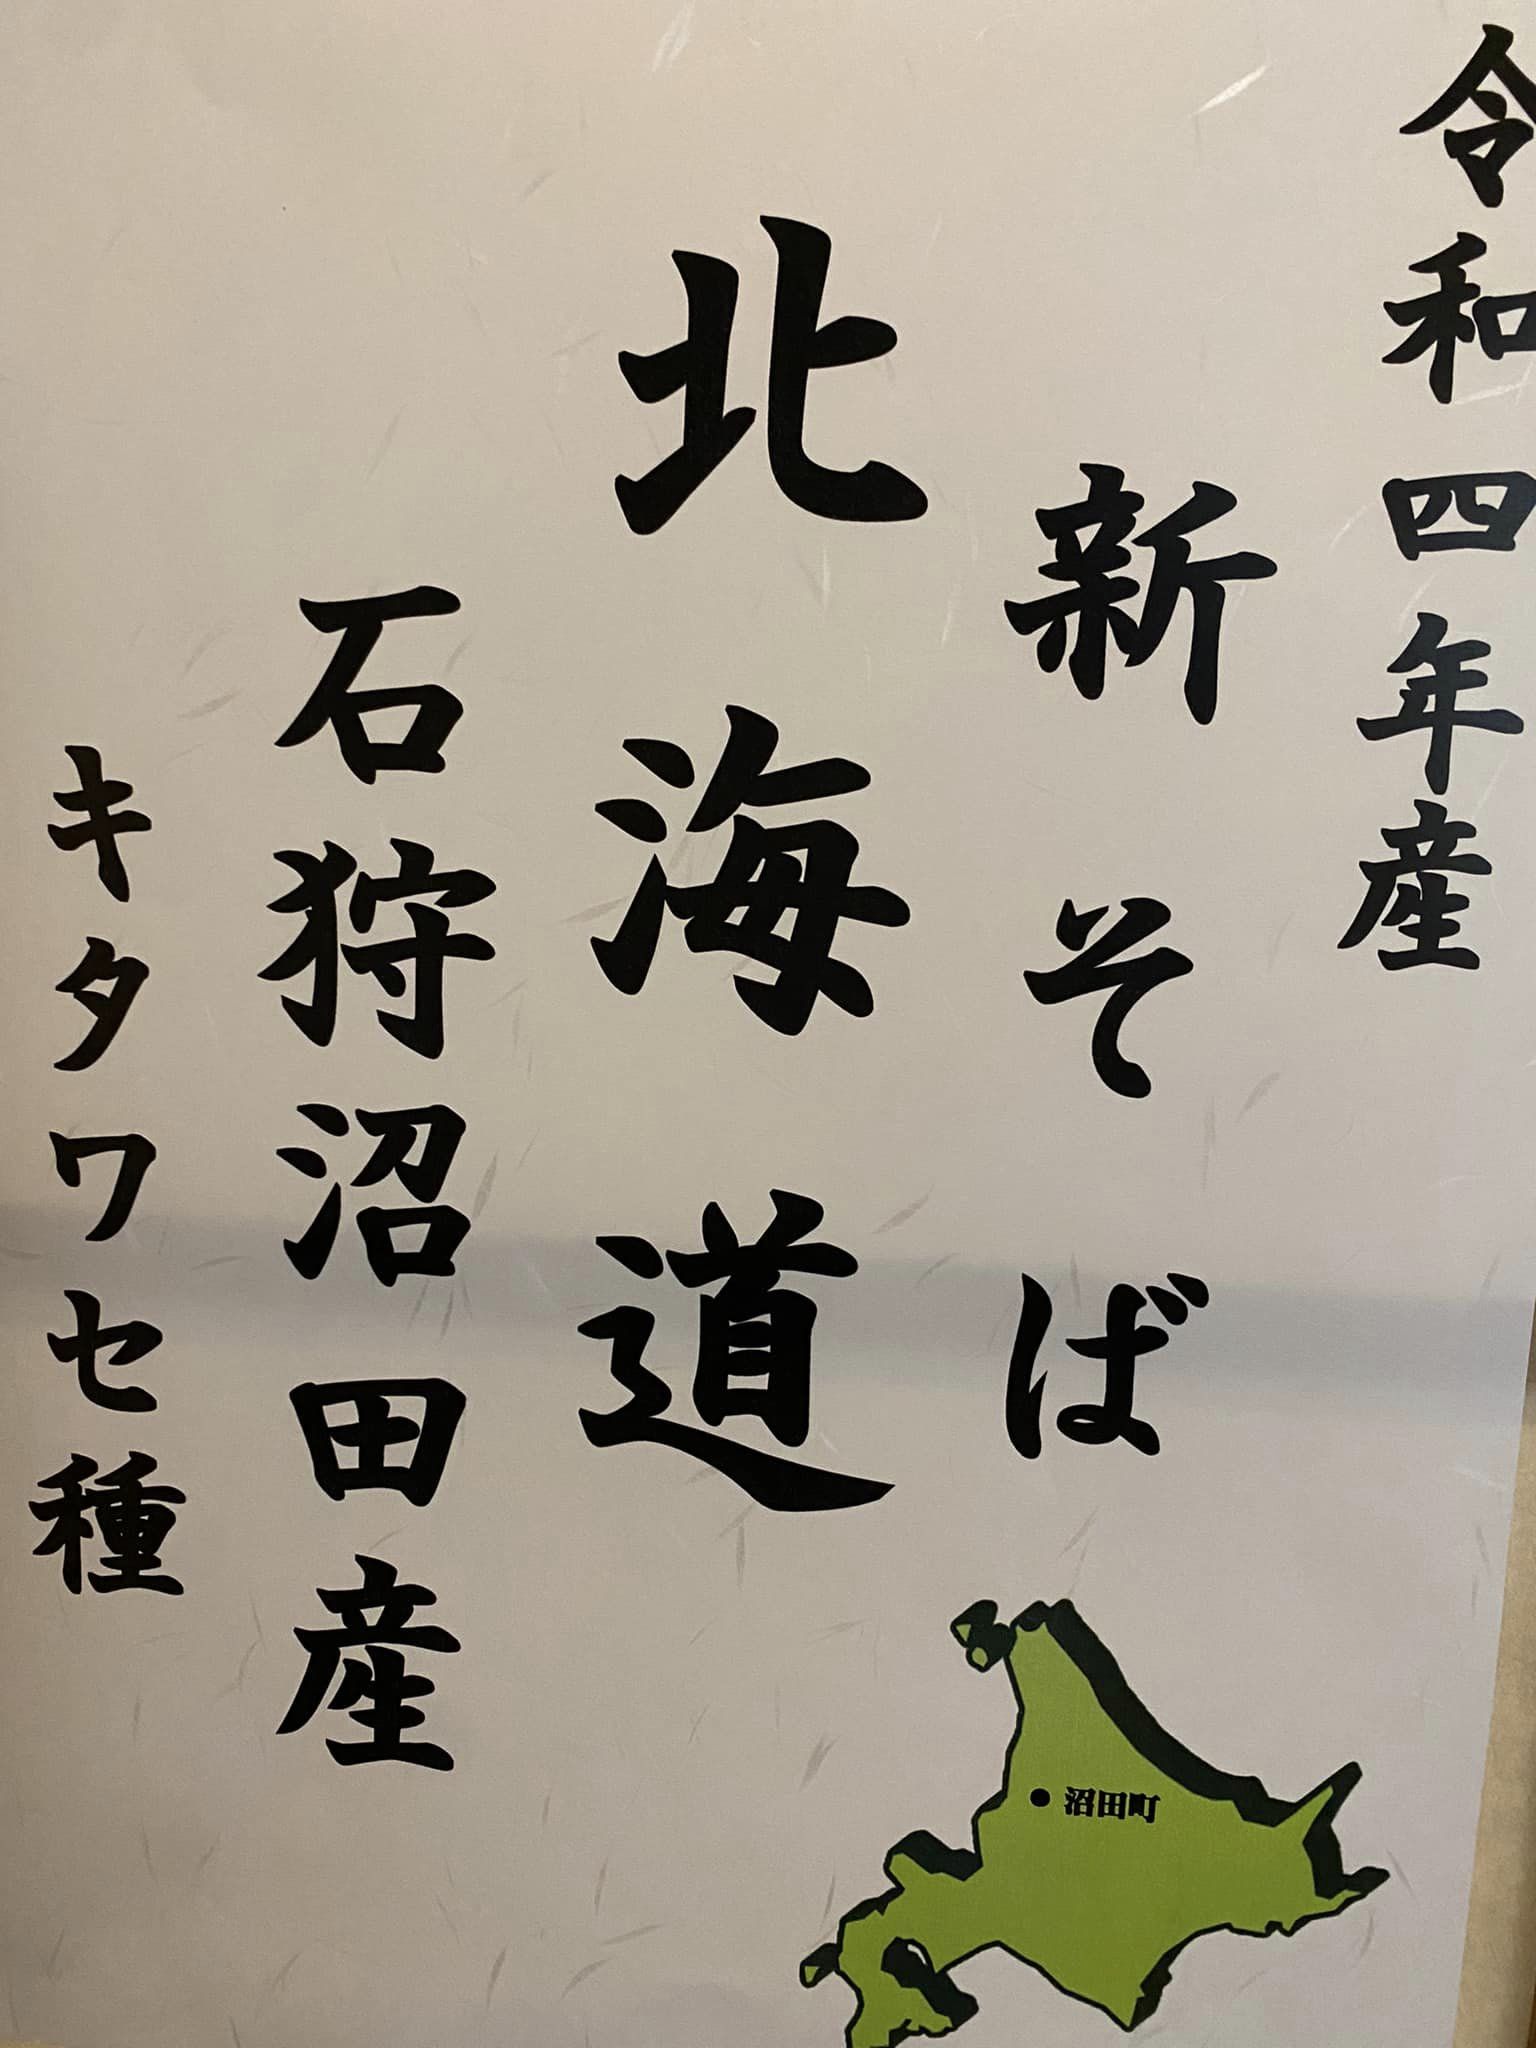 令和四年産
新そば
北海道
石狩沼田産
キタワセ種
沼田町